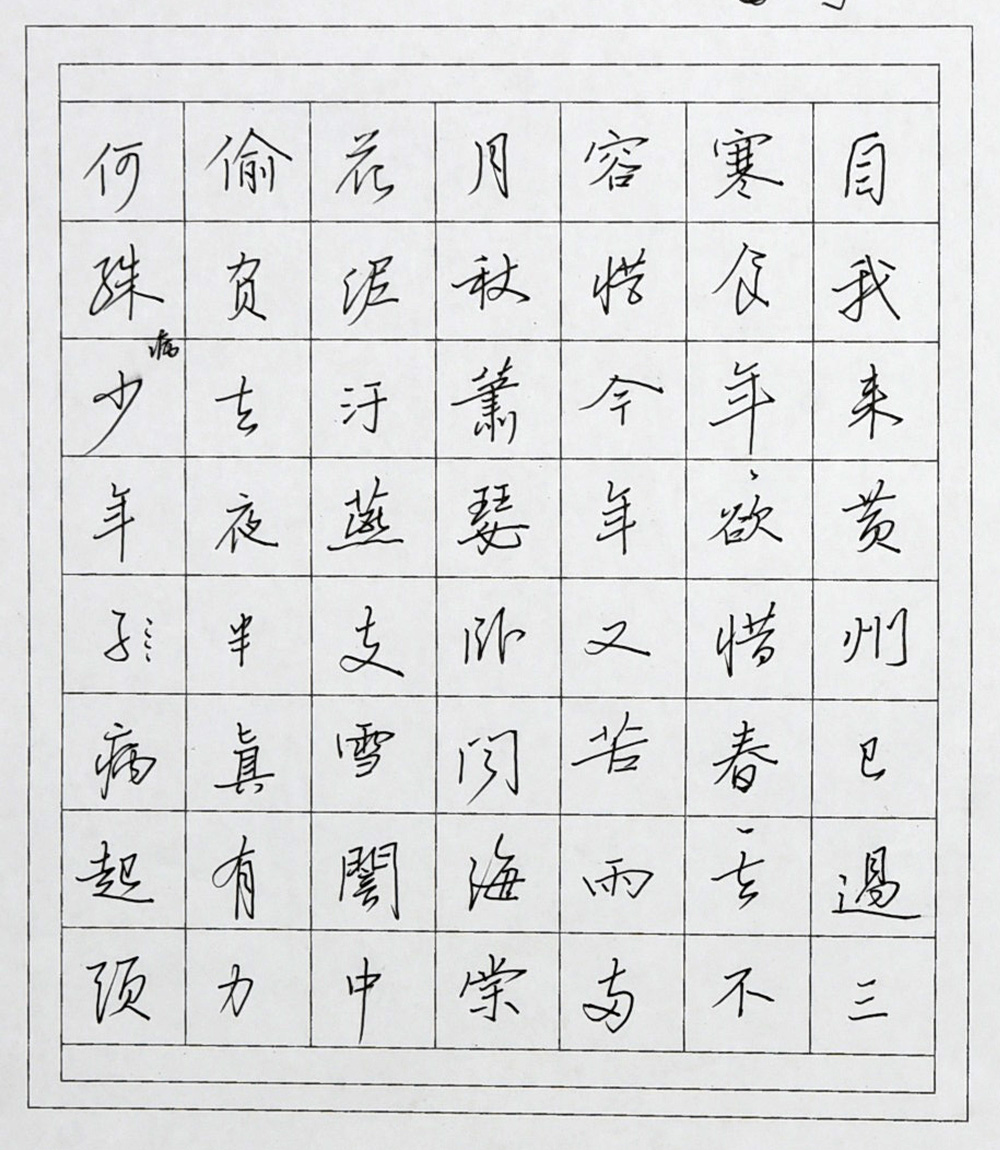 自我来黄州已過三
寒食年〻欲惜春〻去不
容惜今年又苦雨两
月秋蕭瑟卧闻海棠
花泥汙燕支雪闇中
偷負去夜半眞有力
何殊病少年子病起頭